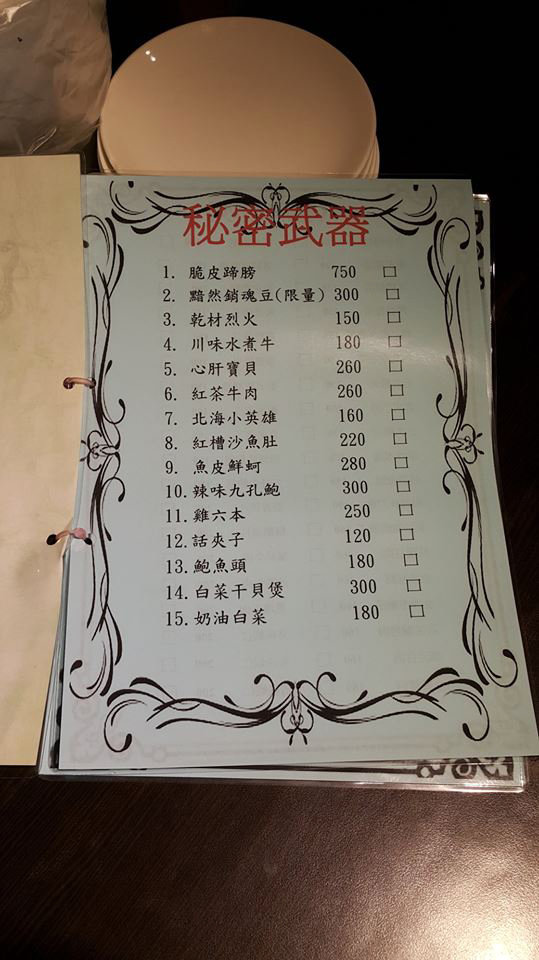 秘密武器
1. 脆皮蹄膀 750 □
2. 黯然銷魂豆(限量) 300 □
3. 乾材烈火 150 □
4. 川味水煮牛 180 □
5. 心肝寶貝 260 □
6. 紅茶牛肉 260 □
7. 北海小英雄 160 □
8. 紅槽沙魚肚 220 □
9. 魚皮鮮蚵 280 □
10. 辣味九孔鮑 300 □
11. 雞六本 250 □
12. 話夾子 120 □
13. 鮑魚頭 180 □
14. 白菜干貝煲 300 □
15. 奶油白菜 180 □